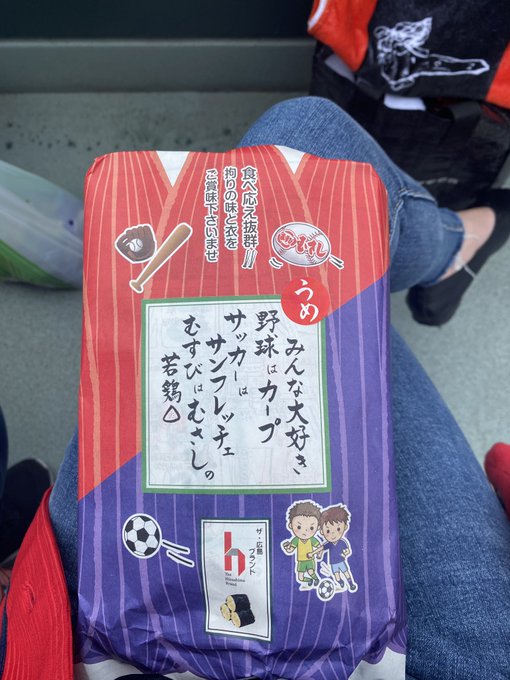 食べ応え抜群!!
拘りの味と衣を
ご賞味下さいませ
むさし
うめ
みんな大好き
野球はカープ
サッカーは
サンフレッチェ
むすびはむさしの
若鶏△
ザ・広島
ブランド
The
Hiroshima
Brand